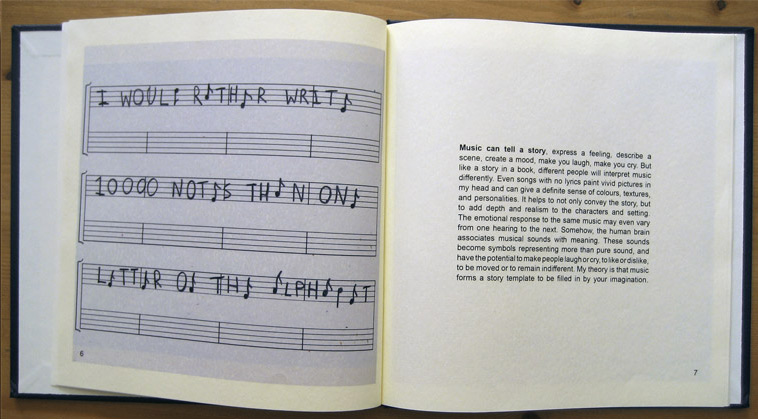 I WOUL♪ R♪TH♪R WRIT♪
10000 NOT♪S TH♪N ON♪
L♪TT♪R O♪ TH♪ ♪LPH♪♪♪T
6
Music can tell a story, express a feeling, describe a
scene, create a mood, make you laugh, make you cry. But
like a story in a book, different people will interpret music
differently. Even songs with no lyrics paint vivid pictures in
my head and can give a definite sense of colours, textures,
and personalities. It helps to not only convey the story, but
to add depth and realism to the characters and setting.
The emotional response to the same music may even vary
from one hearing to the next. Somehow, the human brain
associates musical sounds with meaning. These sounds
become symbols representing more than pure sound, and
have the potential to make people laugh or cry, to like or dislike,
to be moved or to remain indifferent. My theory is that music
forms a story template to be filled in by your imagination.
7